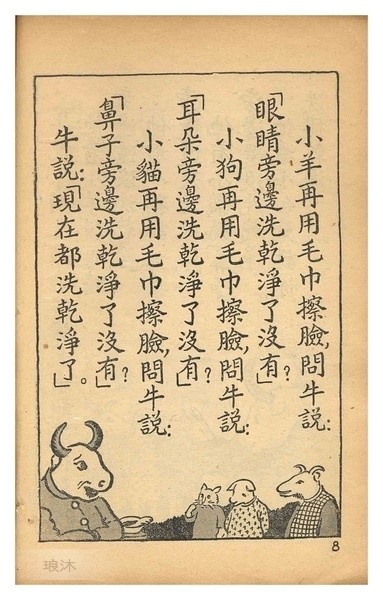 小羊再用毛巾擦臉,問牛說:
「眼睛旁邊洗乾淨了沒有?」
小狗再用毛巾擦臉,問牛說:
「耳朵旁邊洗乾淨了沒有?」
小貓再用毛巾擦臉,問牛說:
「鼻子旁邊洗乾淨了沒有?」
牛說:「現在都洗乾淨了」。
8
琅沐